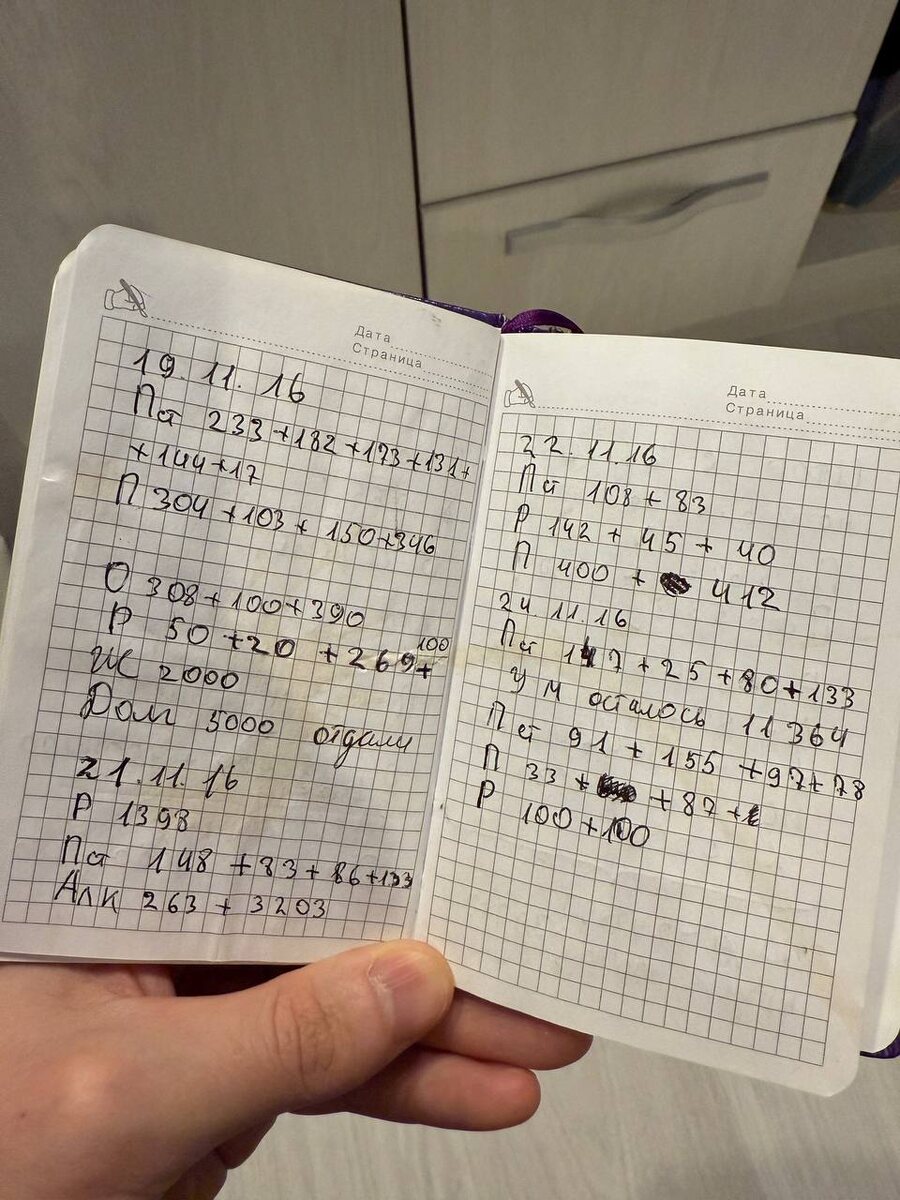 Дата
Страница
19.11.16
Пст 233+182+173+131+
+144+17
П 304+103+150+346
О 308+100+390
Р 50+20+269+100
Ж 2000
Долг 5000 отдали
21.11.16
Р 1398
Пст 148+83+86+133
Алк 263+3203
Дата
Страница
22.11.16
Пст 108+83
Р 142+45+40
П 400+ 412
24.11.16
Пст 147+25+80+133
У М осталось 11364
Пст 91+155+97+78
П 33+ +87+
Р 100+100